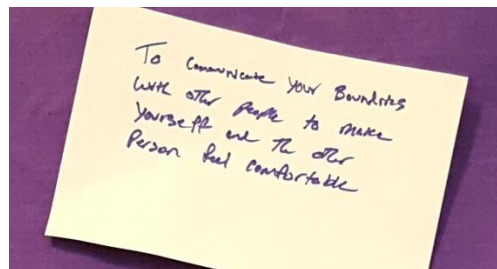 To Communicate Your Boundries
With other people to make
Yourself and the other
Person feel comfortable